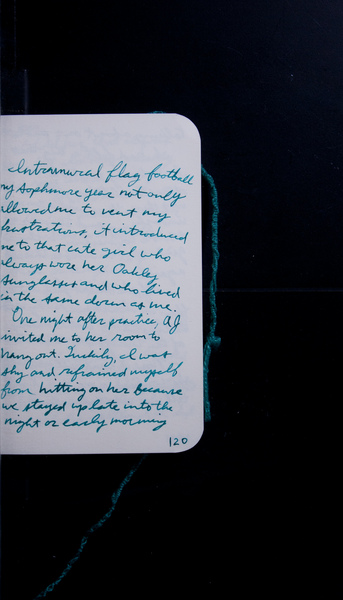 Intrammural flag football
my sophmore year not only
allowed me to vent my
frustrations, it introduced
me to that cute girl who
always wore her Oakley
sunglasses and who lived
in the same dorm as me.
One night after practice, AJ
invited me to her room to
hang out. Luckily, I was
shy and refrained myself
from hitting on her because
we stayed up late into the
night or early morning
120